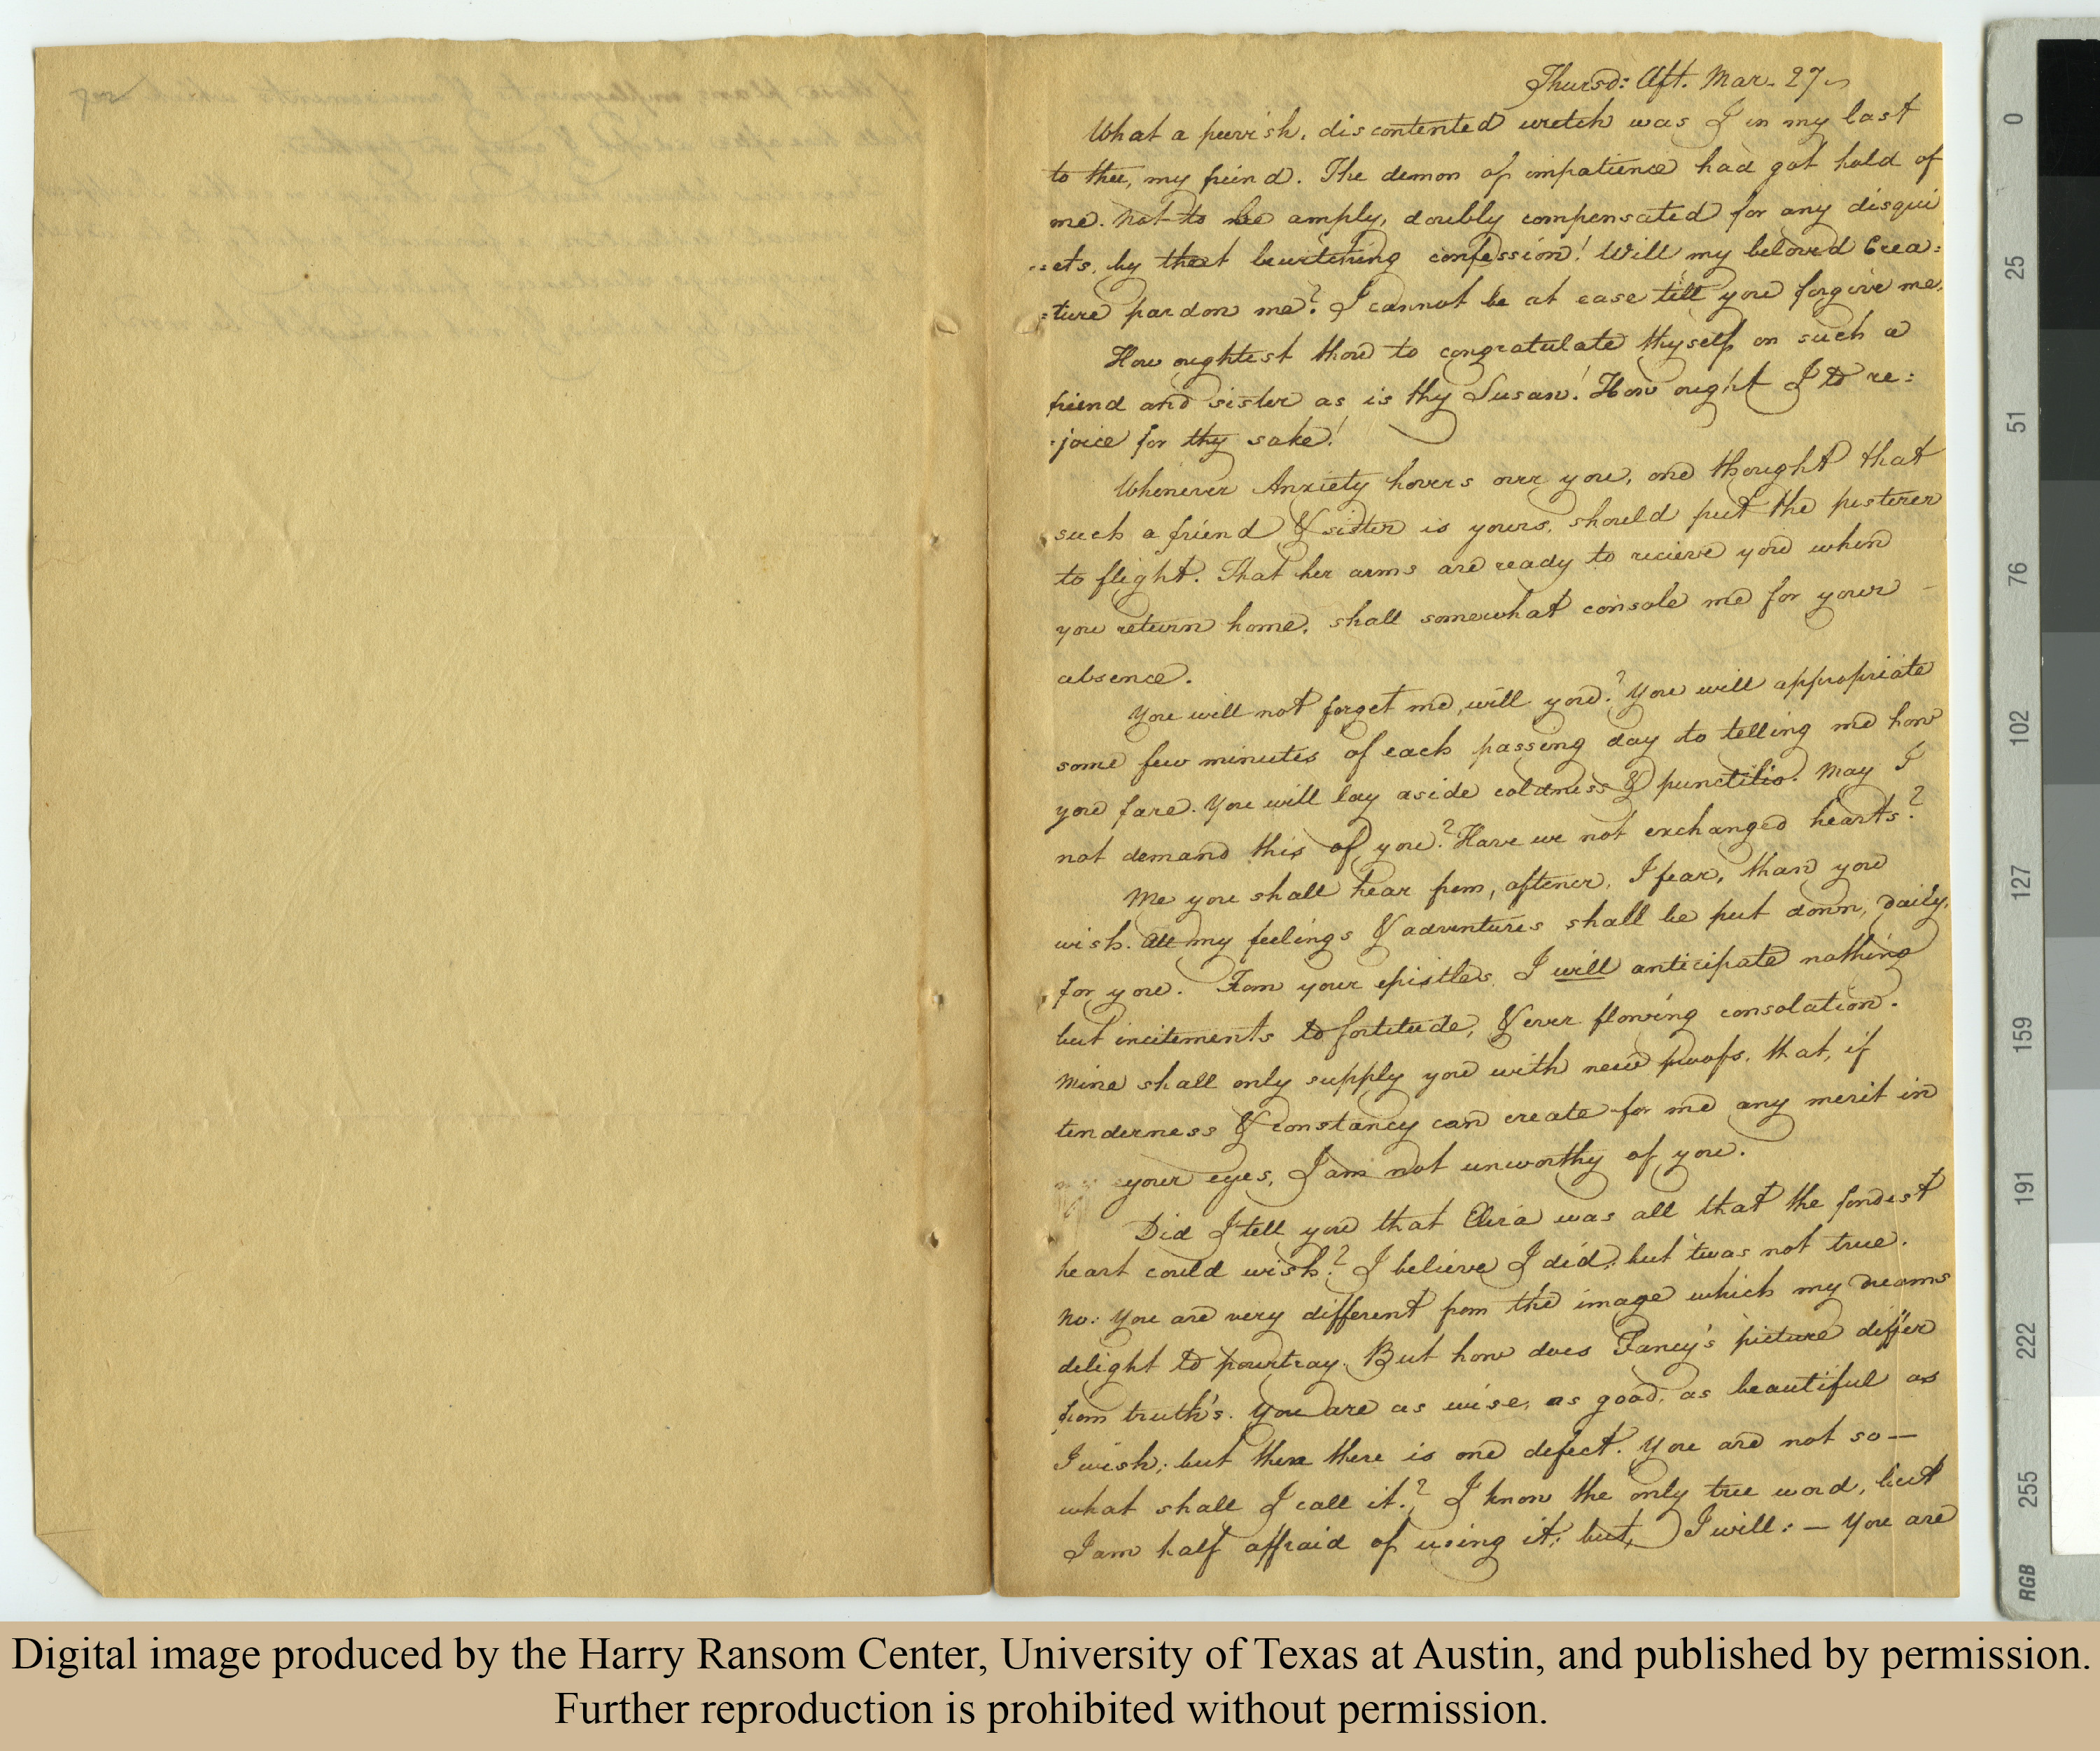 Thursd: Aft. Mar. 27
What a peevish, discontented wretch was I in my last
to thee, my friend. The demon of impatience had got hold of
me. Not to be amply, doubly compensated for any disqui
ets, by that bewitching confession! Will my beloved Crea=
=ture pardon me? I cannot be at ease till you forgive me.
How oughtest thou to congratulate thyself on such a
friend and sister as is thy Susan! How ought I to re=
=joice for thy sake!
Whenever Anxiety hovers over you, one thought that
such a friend & sister is yours, should put the pesterer
to flight. That her arms are ready to recieve you when
you return home, shall somewhat console me for your
absence.
You will not forget me, will you? You will appropriate
some few minutes of each passing day to telling me how
you fare. You will lay aside coldness & punctilio. May I
not demand this of you? Have we not exchanged hearts?
Me you shall hear from, oftener, I fear, than you
wish. All my feelings & adventures shall be put down, daily,
for you. From your epistles I will anticipate nothing
but incitements to fortitude, & ever flowing consolation.
Mine shall only supply you with new proofs, that, if
tenderness & constancy can create for me any merit in
your eyes, I am not unworthy of you.
Did I tell you that Eliza was all that the fondest
heart could wish? I believe I did, but 'twas not true.
No: You are very different from the image which my dreams
delight to pourtray. But how does Fancy's picture differ
from truth's. You are as wise, as good, as beautiful as
I wish; but there there is one defect. You are not so—
what shall I call it? I know the only true word, but
I am half affraid of using it; but, I will: — You are
0
25
51
76
102
127
159
191
222
255
RGB
Digital image produced by the Harry Ransom Center, University of Texas at Austin, and published by permission.
Further reproduction is prohibited without permission.